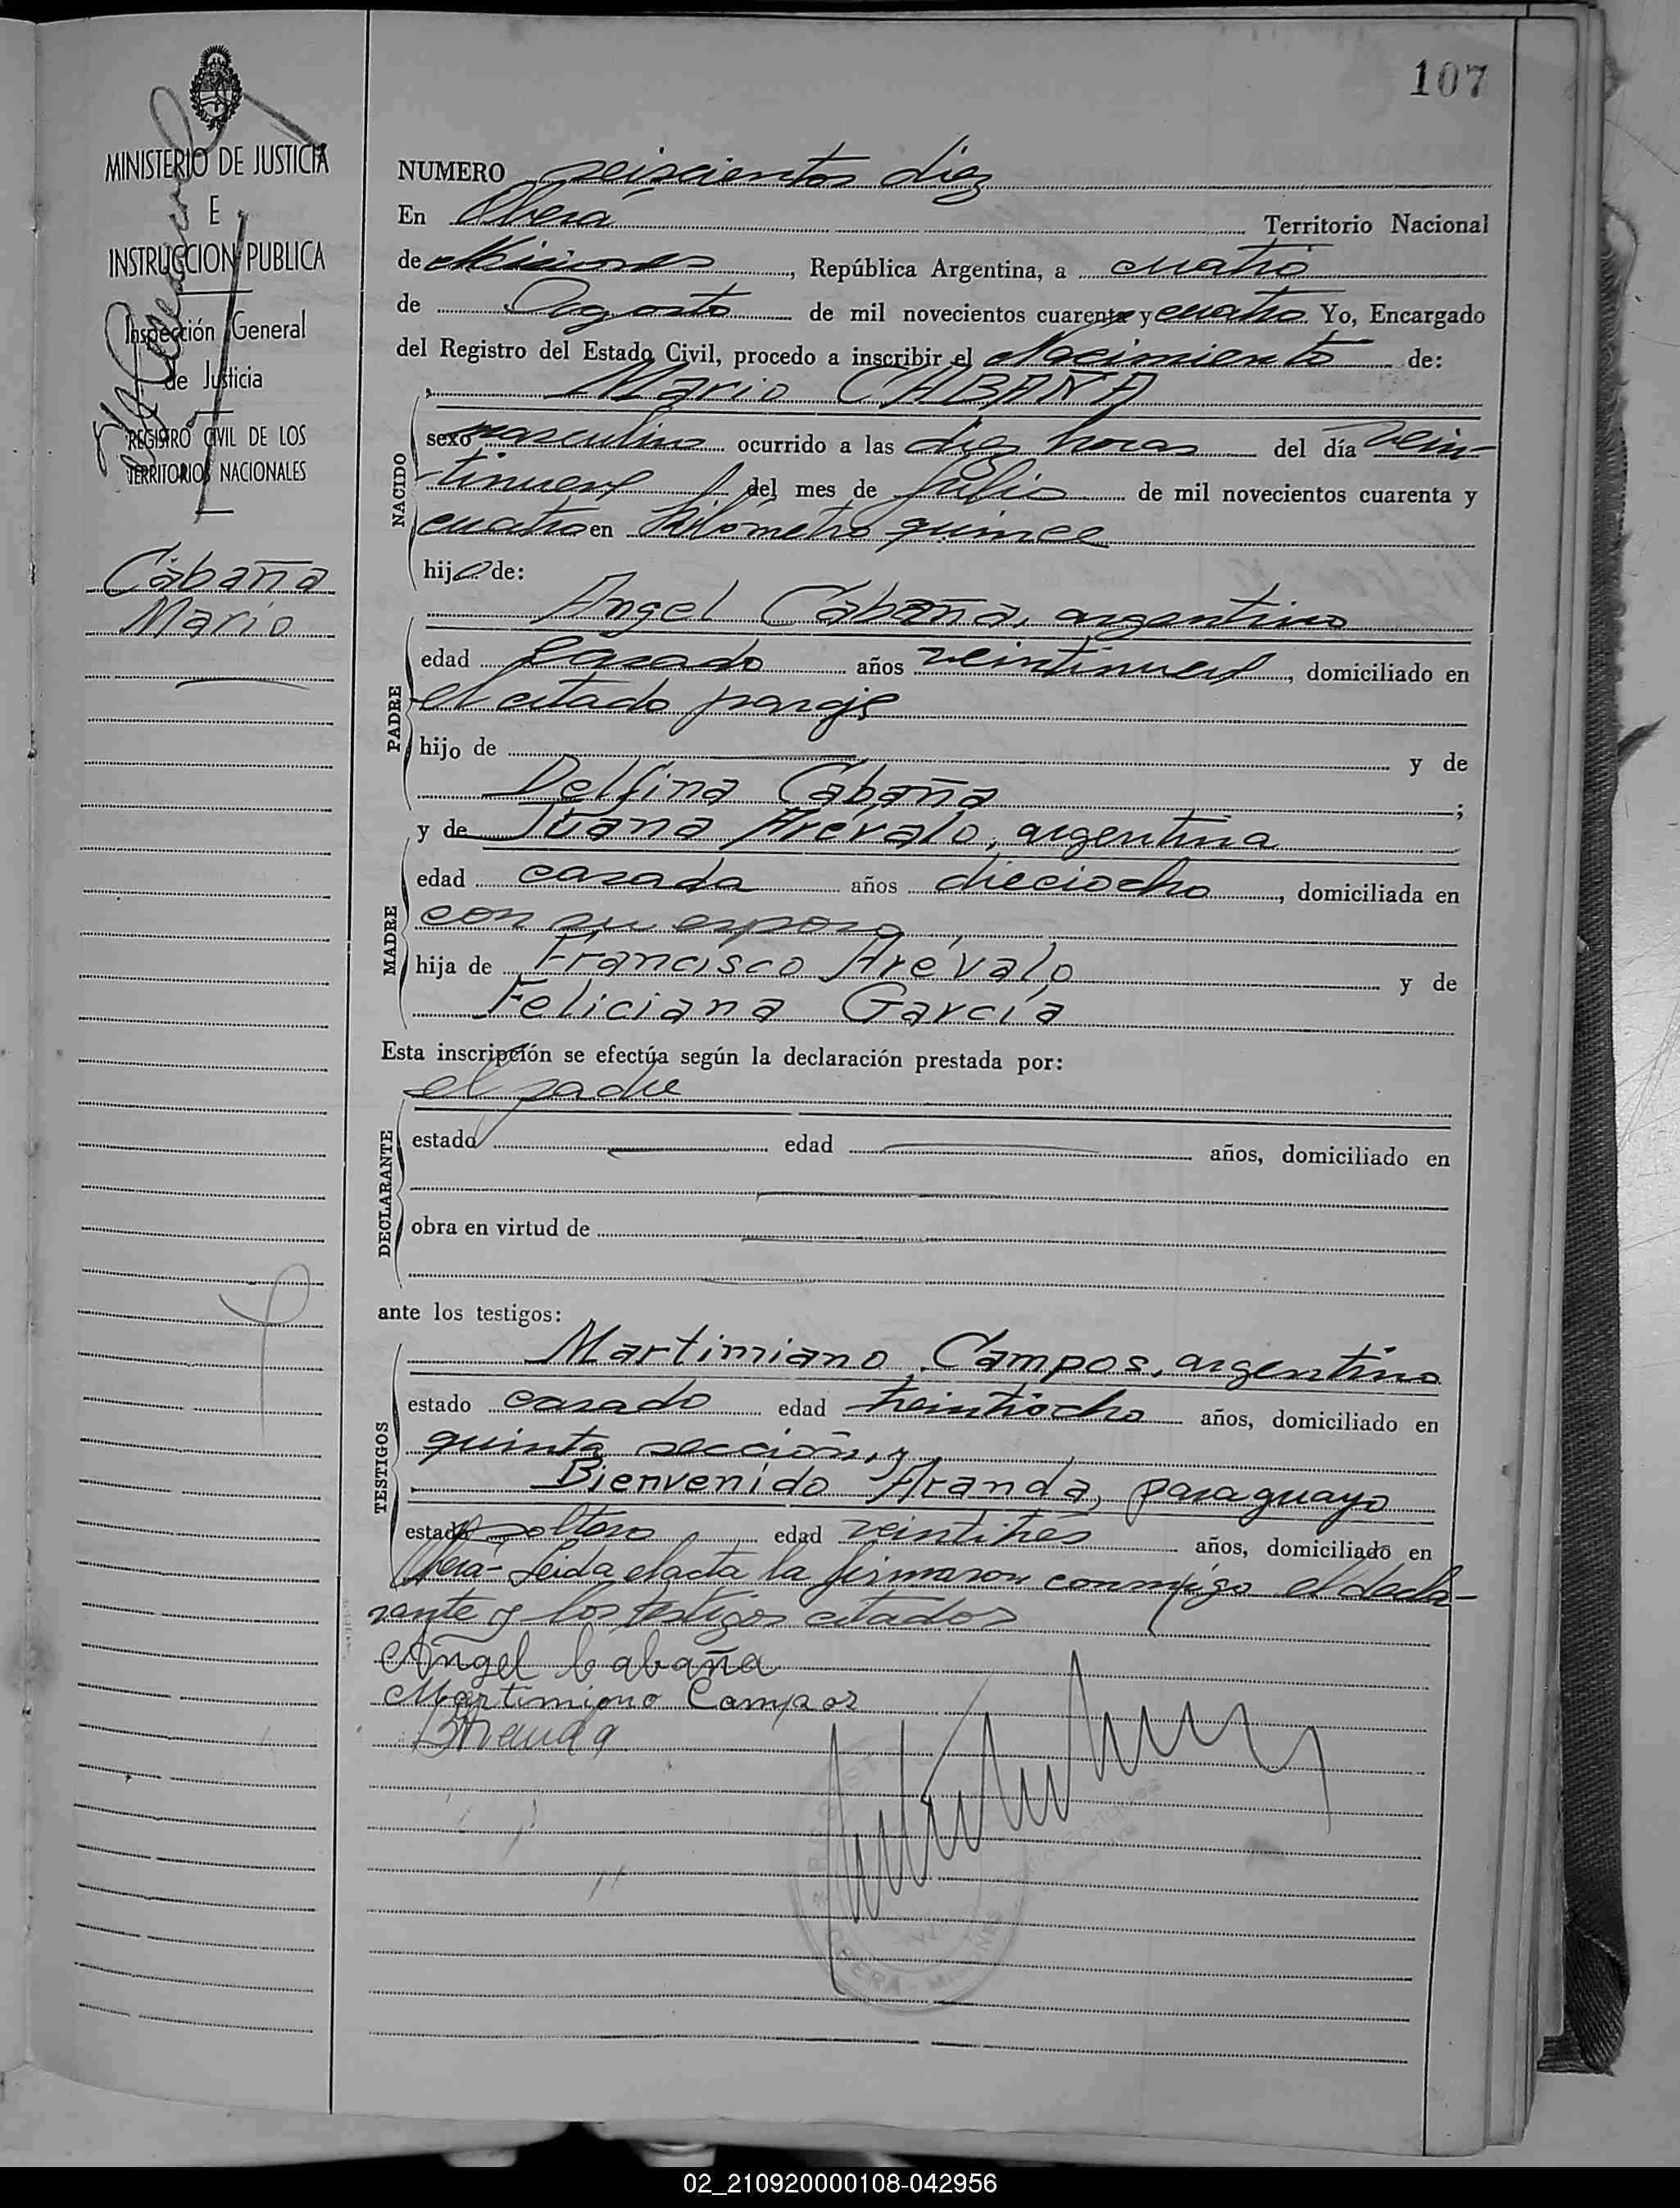 107
MINISTERIO DE JUSTICIA
E
INSTRUCCION PUBLICA
Inspección General
de Justicia
REGISTRO CIVIL DE LOS
TERRITORIOS NACIONALES
Cabaña
Mario
NUMERO seiscientos diez
En Oberá Territorio Nacional
de Misiones, República Argentina, a cuatro
de Agosto de mil novecientos cuarenta y cuatro Yo, Encargado
del Registro del Estado Civil, procedo a inscribir el Nacimiento de:
Mario CABAÑA
NACIDO
sexo masculino ocurrido a las diez horas del día vein-
tinueve del mes de Julio de mil novecientos cuarenta y
cuatro en Kilómetro quince
hijo de:
Angel Cabaña, argentino
PADRE
edad casado años veintinueve, domiciliado en
el citado paraje
hijo de y de
Delfina Cabaña;
y de Juana Arévalo, argentina
MADRE
edad casada años dieciocho, domiciliada en
con su esposo
hija de Francisco Arévalo y de
Feliciana García
Esta inscripción se efectúa según la declaración prestada por:
el padre
DECLARANTE
estado edad años, domiciliado en
obra en virtud de
ante los testigos:
TESTIGOS
Martimiano Campos, argentino
estado casado edad treintiocho años, domiciliado en
quinta sección, y
Bienvenido Aranda, paraguayo
estado soltero, edad veintitrés años, domiciliado en
Oberá - Leida el acta la firmaron conmigo el decla-
rante y los testigos citados
Angel Cabaña
Martimiano Campos
BAranda
OBERA - MISIONES
02_210920000108-042956